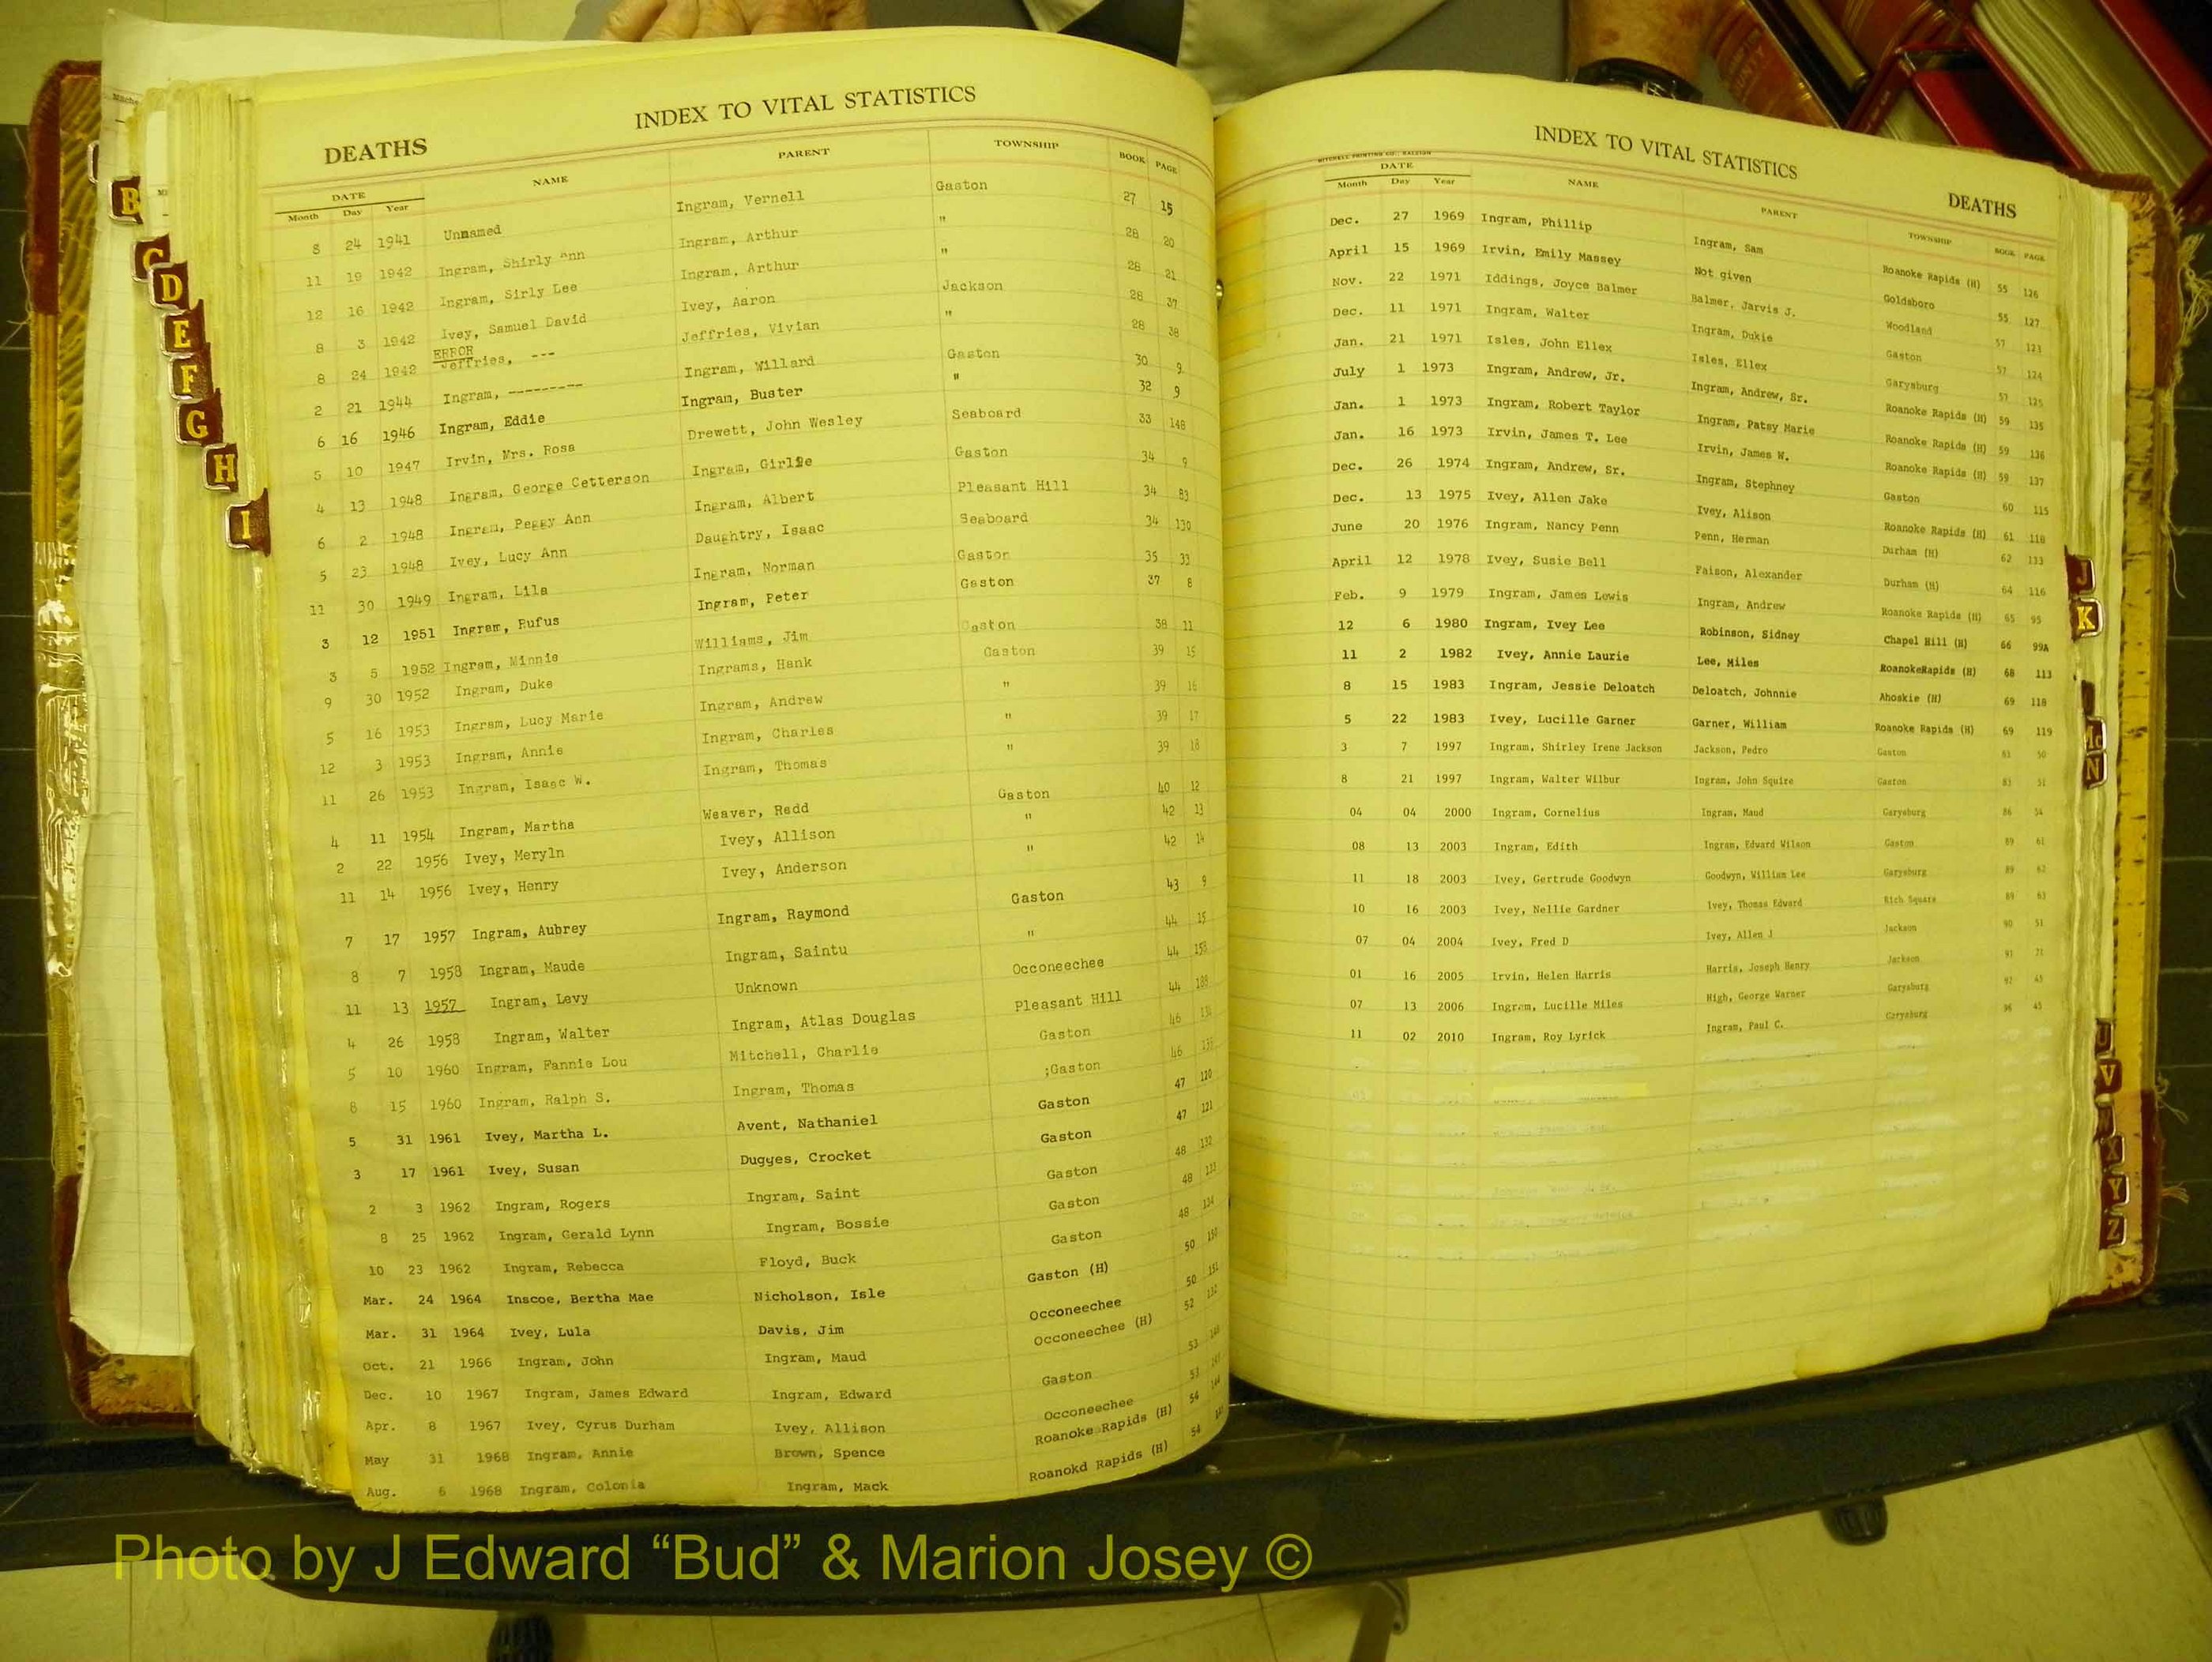 INDEX TO VITAL STATISTICS
DEATHS
DATE NAME PARENT TOWNSHIP BOOK PAGE
Month Day Year
8 24 1941 Unnamed Ingram, Vernell Gaston 27 15
11 19 1942 Ingram, Shirly Ann Ingram, Arthur " 28 20
12 16 1942 Ingram, Sirly Lee Ingram, Arthur " 28 21
8 3 1942 Ivey, Samuel David Ivey, Aaron Jackson 28 37
ERROR
8 24 1942 Jeffries, --- Jeffries, Vivian " 28 38
2 21 1944 Ingram, --------- Ingram, Willard Gaston 30 9
6 16 1946 Ingram, Eddie Ingram, Buster " 32 9
5 10 1947 Irvin, Mrs. Rosa Drewett, John Wesley Seaboard 33 148
4 13 1948 Ingram, George Cetterson Ingram, Girlie Gaston 34 9
6 2 1948 Ingram, Peggy Ann Ingram, Albert Pleasant Hill 34 83
5 23 1948 Ivey, Lucy Ann Daughtry, Isaac Seaboard 34 130
11 30 1949 Ingram, Lila Ingram, Norman Gaston 35 33
3 12 1951 Ingram, Rufus Ingram, Peter Gaston 37 8
3 5 1952 Ingram, Minnie Williams, Jim Gaston 38 11
9 30 1952 Ingram, Duke Ingrams, Hank Gaston 39 15
5 16 1953 Ingram, Lucy Marie Ingram, Andrew " 39 16
12 3 1953 Ingram, Annie Ingram, Charles " 39 17
11 26 1953 Ingram, Isaac W. Ingram, Thomas " 39 18
4 11 1954 Ingram, Martha Weaver, Redd Gaston 40 12
2 22 1956 Ivey, Meryln Ivey, Allison " 42 13
11 14 1956 Ivey, Henry Ivey, Anderson " 42 14
7 17 1957 Ingram, Aubrey Ingram, Raymond Gaston 43 9
8 7 1958 Ingram, Maude Ingram, Saintu " 44 15
11 13 1957 Ingram, Levy Unknown Occoneechee 44 158
4 26 1958 Ingram, Walter Ingram, Atlas Douglas Pleasant Hill 44 189
5 10 1960 Ingram, Fannie Lou Mitchell, Charlie Gaston 46
8 15 1960 Ingram, Ralph S. Ingram, Thomas ;Gaston 46
5 31 1961 Ivey, Martha L. Avent, Nathaniel Gaston 47 120
3 17 1961 Ivey, Susan Dugyes, Crocket Gaston 47 121
2 3 1962 Ingram, Rogers Ingram, Saint Gaston 48 132
8 25 1962 Ingram, Gerald Lynn Ingram, Bossie Gaston 48 133
10 23 1962 Ingram, Rebecca Floyd, Buck Gaston 48 134
Mar. 24 1964 Inscoe, Bertha Mae Nicholson, Isle Gaston (H) 50
Mar. 31 1964 Ivey, Lula Davis, Jim Occoneechee 50
Oct. 21 1966 Ingram, John Ingram, Maud Occoneechee (H) 52
Dec. 10 1967 Ingram, James Edward Ingram, Edward Gaston 53
Apr. 8 1967 Ivey, Cyrus Durham Ivey, Allison Occoneechee 53
May 31 1968 Ingram, Annie Brown, Spence Roanoke Rapids (H) 54
Aug. 6 1968 Ingram, Colonia Ingram, Mack Roanokd Rapids (H) 54
INDEX TO VITAL STATISTICS
DEATHS
MITCHELL PRINTING CO., RALEIGH
DATE NAME PARENT TOWNSHIP BOOK PAGE
Month Day Year
Dec. 27 1969 Ingram, Phillip Ingram, Sam Roanoke Rapids (H) 55 126
April 15 1969 Irvin, Emily Massey Not given Goldsboro 55 127
Nov. 22 1971 Iddings, Joyce Balmer Balmer, Jarvis J. Woodland 57 123
Dec. 11 1971 Ingram, Walter Ingram, Dukie Gaston 57 124
Jan. 21 1971 Isles, John Ellex Isles, Ellex Garysburg 57 125
July 1 1973 Ingram, Andrew, Jr. Ingram, Andrew, Sr. Roanoke Rapids (H) 59 135
Jan. 1 1973 Ingram, Robert Taylor Ingram, Patsy Marie Roanoke Rapids (H) 59 136
Jan. 16 1973 Irvin, James T. Lee Irvin, James W. Roanoke Rapids (H) 59 137
Dec. 26 1974 Ingram, Andrew, Sr. Ingram, Stephney Gaston 60 115
Dec. 13 1975 Ivey, Allen Jake Ivey, Alison Roanoke Rapids (H) 61 118
June 20 1976 Ingram, Nancy Penn Penn, Herman Durham (H) 62 133
April 12 1978 Ivey, Susie Bell Faison, Alexander Durham (H) 64 116
Feb. 9 1979 Ingram, James Lewis Ingram, Andrew Roanoke Rapids (H) 65 95
12 6 1980 Ingram, Ivey Lee Robinson, Sidney Chapel Hill (H) 66 99A
11 2 1982 Ivey, Annie Laurie Lee, Miles RoanokeRapids (H) 68 113
8 15 1983 Ingram, Jessie Deloatch Deloatch, Johnnie Ahoskie (H) 69 118
5 22 1983 Ivey, Lucille Garner Garner, William Roanoke Rapids (H) 69 119
3 7 1997 Ingram, Shirley Irene Jackson Jackson, Pedro Gaston 83 50
8 21 1997 Ingram, Walter Wilbur Ingram, John Squire Gaston 83 51
04 04 2000 Ingram, Cornelius Ingram, Maud Garysburg 86 54
08 13 2003 Ingram, Edith Ingram, Edward Wilson Gaston 89 61
11 18 2003 Ivey, Gertrude Goodwyn Goodwyn, William Lee Garysburg 89 62
10 16 2003 Ivey, Nellie Gardner Ivey, Thomas Edward Rich Square 89 63
07 04 2004 Ivey, Fred D Ivey, Allen J Jackson 90 51
01 16 2005 Irvin, Helen Harris Harris, Joseph Henry Jackson 91
07 13 2006 Ingram, Lucille Miles High, George Warner Garysburg 92 45
11 02 2010 Ingram, Roy Lyrick Ingram, Paul C. Garysburg 96 45
B
C
D
E
F
G
H
I
J
K
Mc
N
U
V
W
X
Y
Z
Photo by J Edward “Bud” & Marion Josey ©